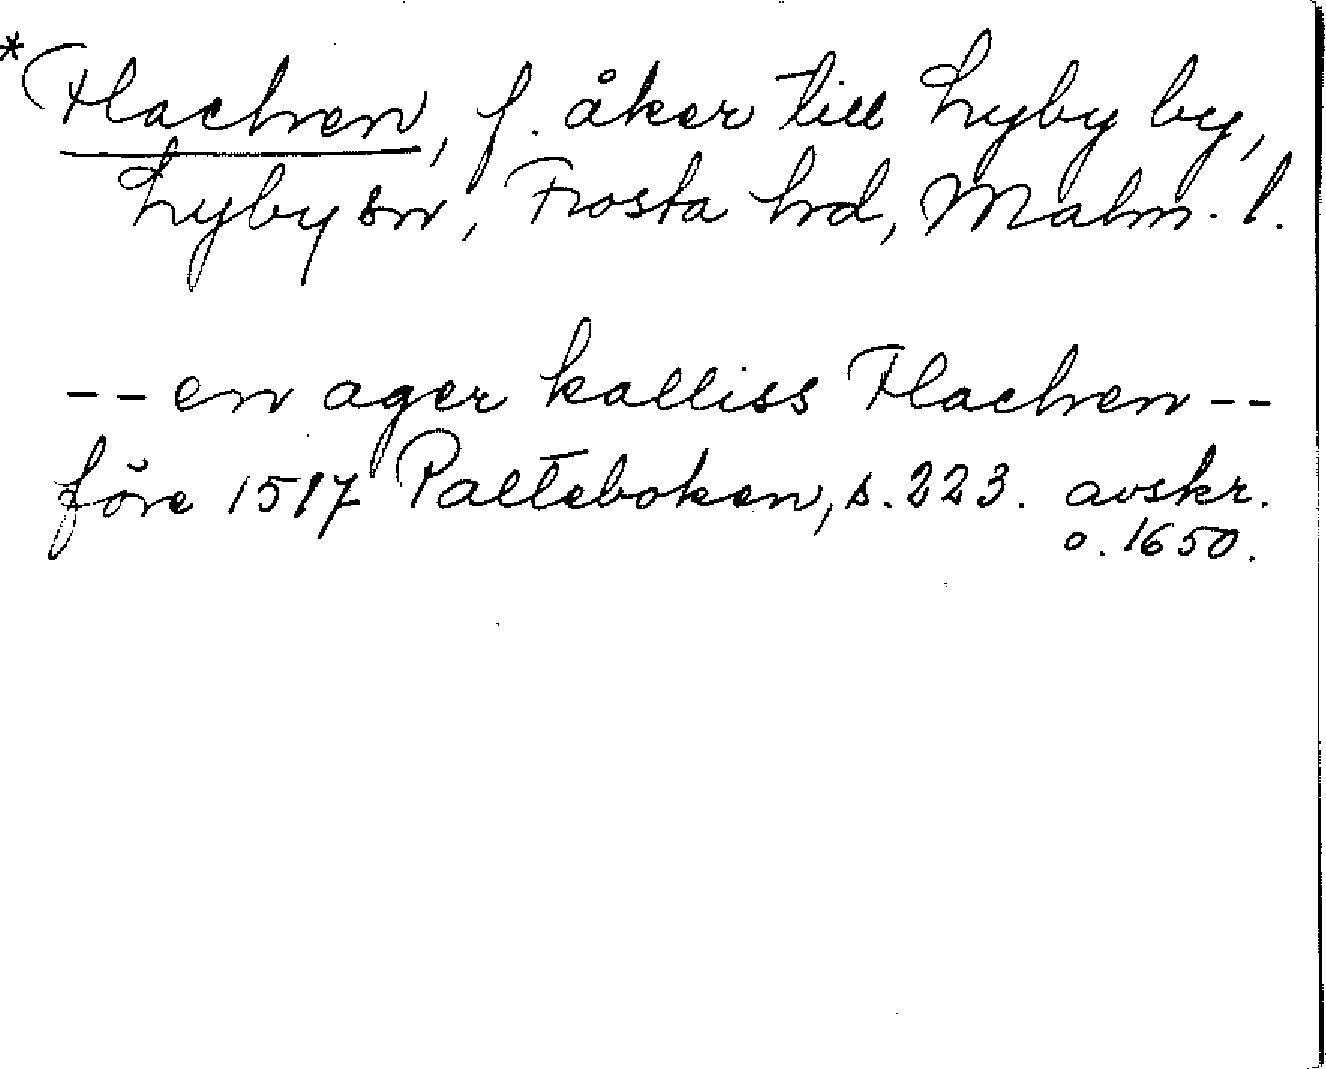 * Flachen, f. åker till Lyby by,
Lyby sn, Frosta hd, Malm. l.
-- en ager kalliss Flachen --
före 1517 Palteboken, s. 223. avskr.
o. 1650.